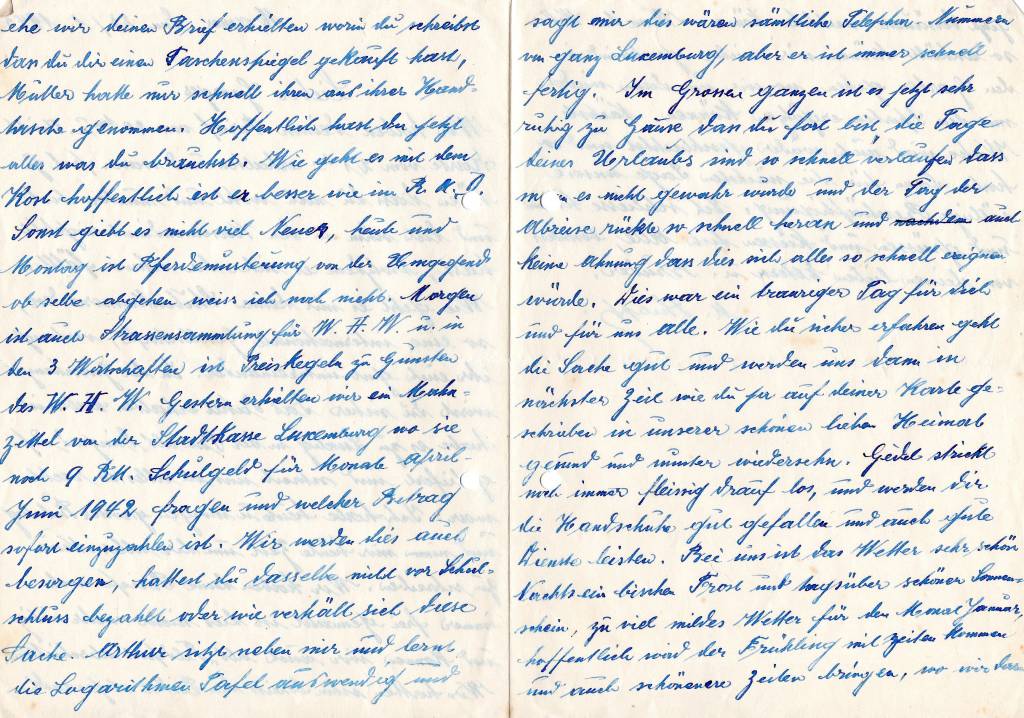 ehe wir deinen Brief erhielten worin du schreibst
dan du dir einen Taschenspiegel gekauft hast,
Mutter hatte nur schnell ihren aus ihrer Hand-
tasche genommen. Hoffentlich hast du jetzt
alles was du brauchst. Wie geht es mit dem
Kost hoffentlich ist er besser wie im R. A. D.
Sonst giebt es nicht viel Neues, heute und
Montag ist Pferdemusterung von der Umgegend
ob selbe abgehen weiss ich noch nicht. Morgen
ist auch Strassensammlung für W. H. W. u. in
den 3 Wirtschaften ist Preiskegeln zu Gunsten
des W. H. W. Gestern erhielten wir ein Mahn-
zettel von der Stadtkasse Luxemburg wo sie
noch 9 RM. Schulgeld für Monate April-
Juni 1942 fragen und welcher Betrag
sofort einzuzahlen ist. Wir werden dies auch
besorgen, hattest du dasselbe nicht vor Schul-
schluss bezahlt oder wie verhält sich diese
Sache. Arthur sitzt neben mir und lernt
die Logarithmen Tafel auswendig und
sagt mir dies wären sämtliche Telephon-Nummern
von ganz Luxemburg, aber er ist immer schnell
fertig. Im Grossen ganzen ist es jetzt sehr
ruhig zu Hause dan du fort bist die Tage
deines Urlaubs sind so schnell verlaufen dass
es nicht gewahr wurde und der Tag der
Abreise rückte so schnell heran und nachdem auch
keine Ahnung dan dies sich alles so schnell ereignen
würde. Dies war ein trauriger Tag für dich
und für uns alle. Wie du sicher erfahren geht
die Sache gut und werden uns dann in
nächster Zeit wie du ja auf deiner Karte ge-
schrieben in unserer schönen lieben Heimat
gesund und munter wiedersehn. Gedel strickt
noch immer fleissig drauf los, und werden dir
die Handschuhe gut gefallen und auch gute
Dienste leisten. Bei uns ist das Wetter sehr schön
Nachts ein bischen Frost und tagsüber schöner Sonnen-
schein, zu viel mildes Wetter für den Monat Januar,
hoffentlich wird der Frühling mit zeiten kommen
und auch schönere Zeiten bringen, wo wir